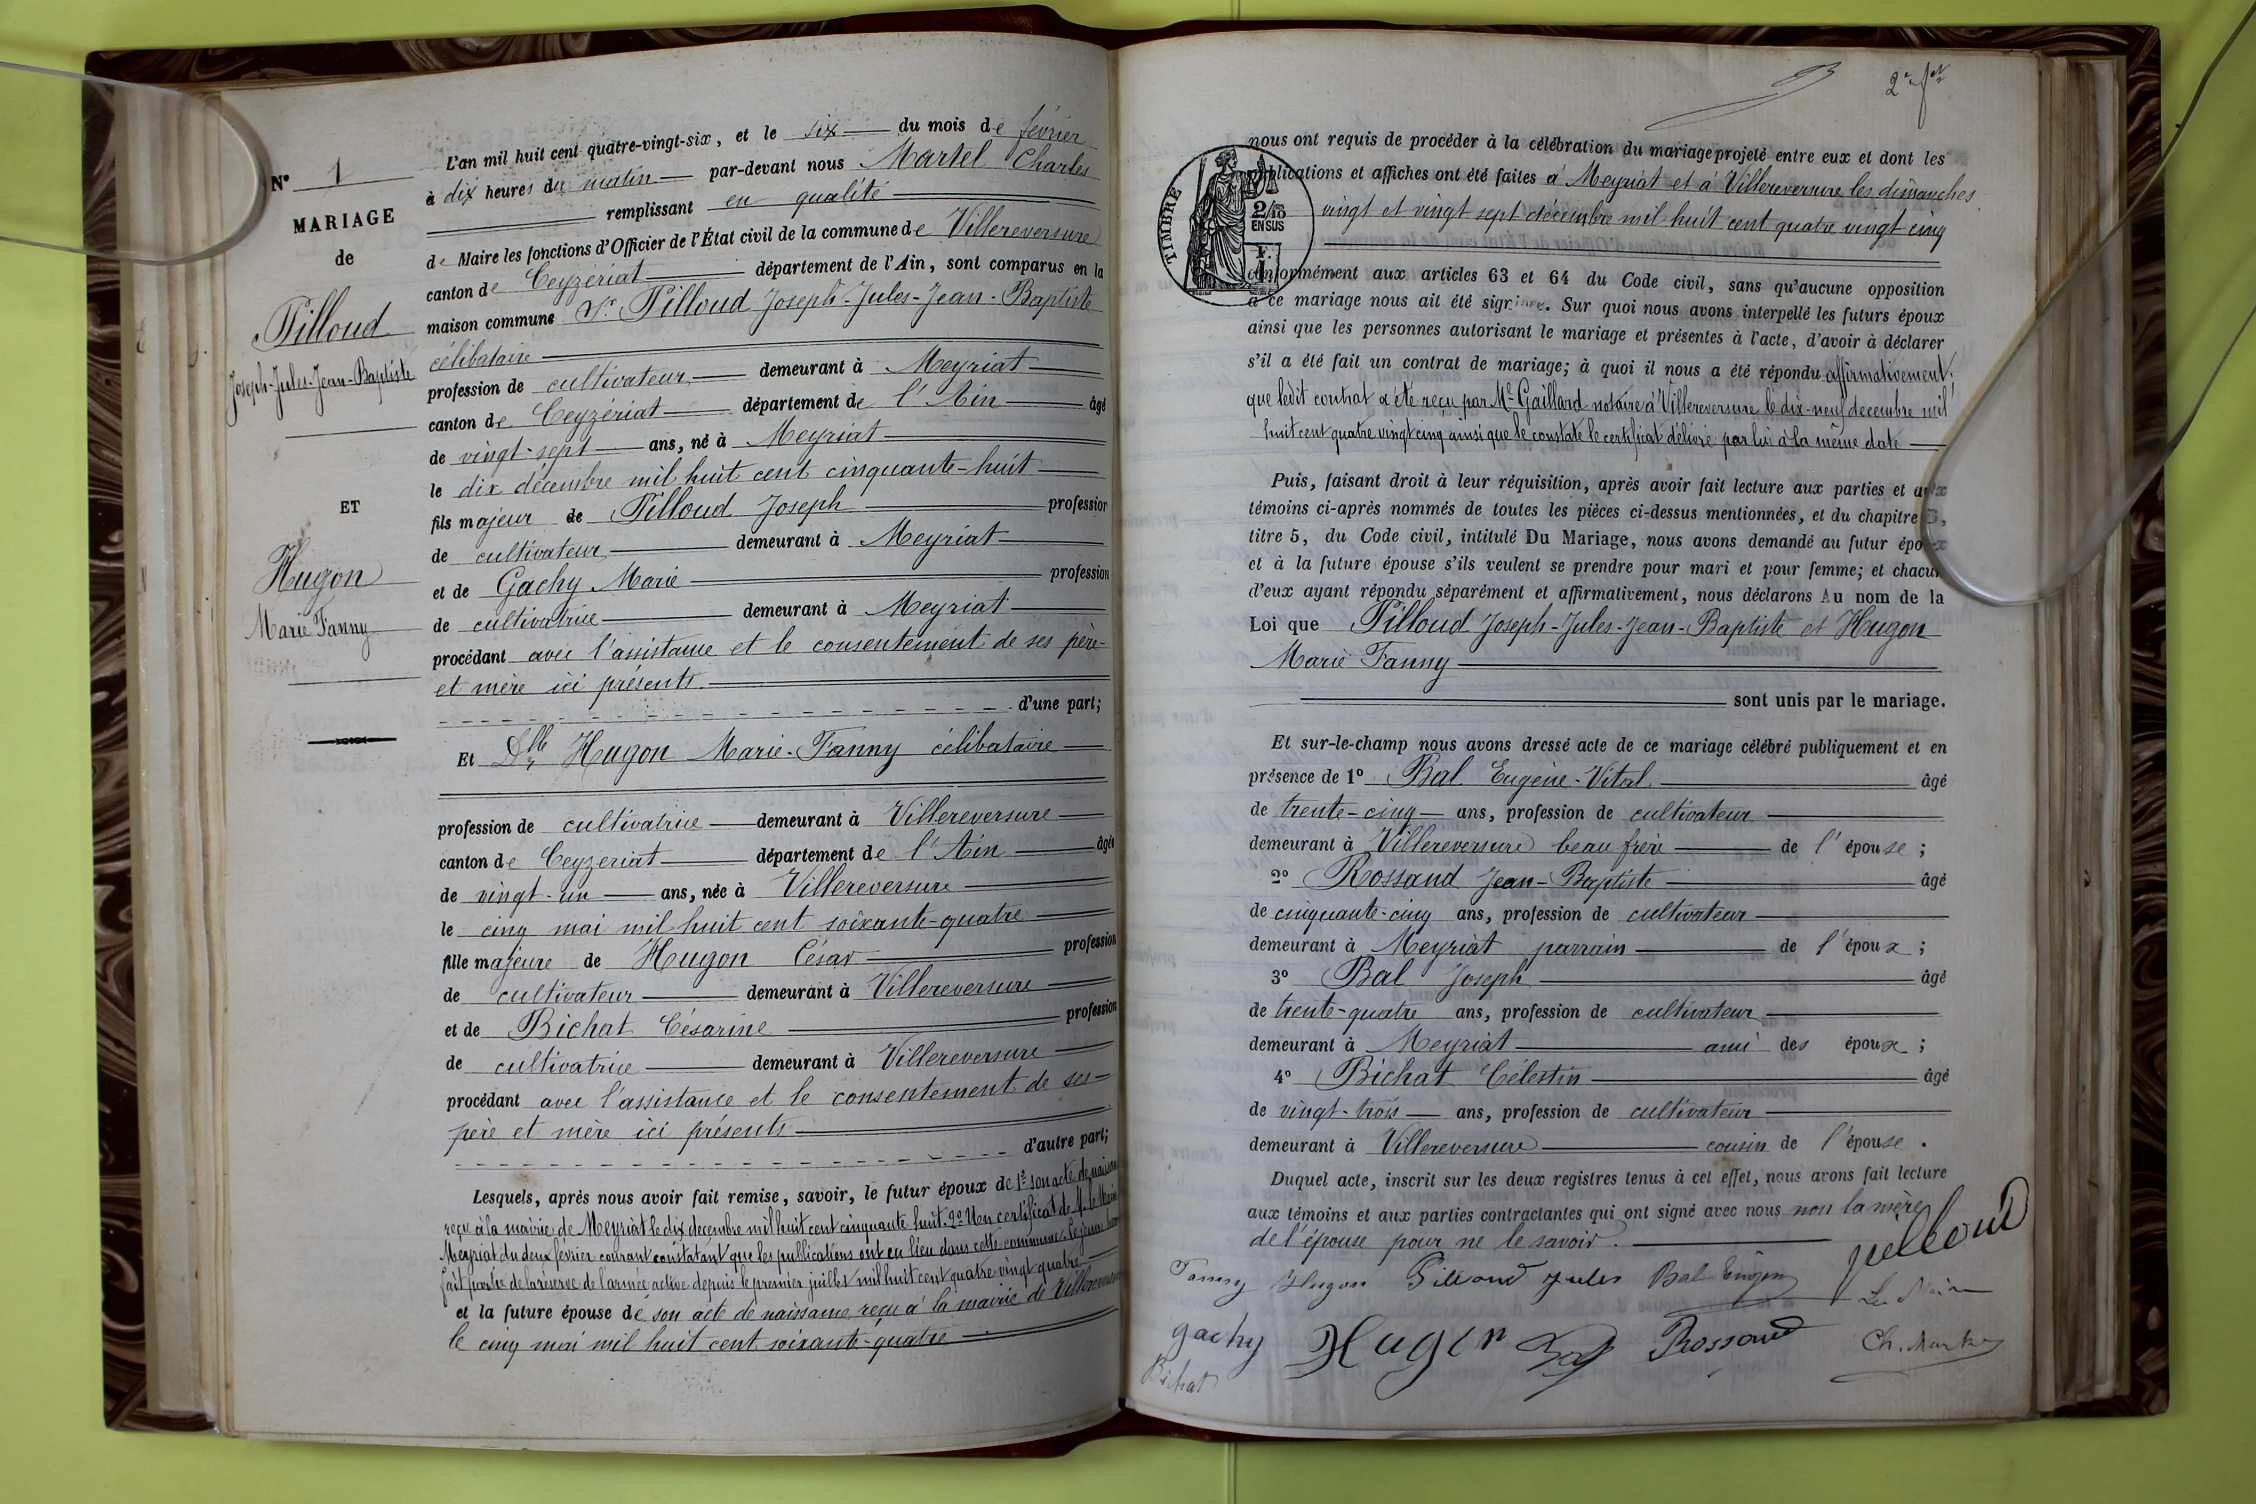 N° 1
MARIAGE
de
Pilloud
Joseph-Jules-Jean-Baptiste
ET
Hugon
Marie Fanny
L'an mil huit cent quatre-vingt-six, et le six du mois de février
à dix heures du matin par-devant nous Martel Charles
remplissant en qualité
de Maire les fonctions d'Officier de l'État civil de la commune de Villereversure
canton de Ceyzeriat département de l'Ain, sont comparus en la
maison commune Sr Pilloud Joseph-Jules-Jean-Baptiste
célibataire
profession de cultivateur demeurant à Meyriat
canton de Ceyzériat département de l'Ain âgé
de vingt-sept ans, né à Meyriat
le dix décembre mil huit cent cinquante-huit
fils majeur de Pilloud Joseph profession
de cultivateur demeurant à Meyriat
et de Gachy Marie profession
de cultivatrice demeurant à Meyriat
procédant avec l'assistance et le consentement de ses père
et mère ici présents
d'une part;
Et Dlle Hugon Marie-Fanny célibataire
profession de cultivatrice demeurant à Villereversure
canton de Ceyzeriat département de l'Ain âgée
de vingt-un ans, née à Villereversure
le cinq mai mil huit cent soixante-quatre
fille majeure de Hugon César profession
de cultivateur demeurant à Villereversure
et de Bichat Césarine profession
de cultivatrice demeurant à Villereversure
procédant avec l'assistance et le consentement de ses
père et mère ici présents
d'autre part;
Lesquels, après nous avoir fait remise, savoir, le futur époux de 1° son acte de naissance
reçu à la mairie de Meyriat le dix décembre mil huit cent cinquante huit. 2° Un certificat de Mr le Maire
Meyriat du deux février courant constatant que les publications ont eu lieu dans cette commune. Le jeune homme
fait partie de la réserve de l'armée active depuis le premier juillet mil huit cent quatre vingt quatre
et la future épouse de son acte de naissance reçu à la mairie de Villereversure
le cinq mai mil huit cent soixante-quatre
2e ft
TIMBRE
2/10
EN SUS
nous ont requis de procéder à la célébration du mariage projeté entre eux et dont les
publications et affiches ont été faites à Meyriat et à Villereversure les dimanches
vingt et vingt sept décembre mil huit cent quatre vingt cinq
conformément aux articles 63 et 64 du Code civil, sans qu'aucune opposition
à ce mariage nous ait été signifiée. Sur quoi nous avons interpellé les futurs époux
ainsi que les personnes autorisant le mariage et présentes à l'acte, d'avoir à déclarer
s'il a été fait un contrat de mariage; à quoi il nous a été répondu affirmativement.
que ledit contrat a été reçu par Me Gaillard notaire à Villereversure le dix-neuf decembre mil
huit cent quatre vingt cinq ainsi que le constate le certificat délivré par lui à la même date
Puis, faisant droit à leur réquisition, après avoir fait lecture aux parties et aux
témoins ci-après nommés de toutes les pièces ci-dessus mentionnées, et du chapitre 6,
titre 5, du Code civil, intitulé Du Mariage, nous avons demandé au futur époux
et à la future épouse s'ils veulent se prendre pour mari et pour femme; et chacun
d'eux ayant répondu séparément et affirmativement, nous déclarons Au nom de la
Loi que Pilloud Joseph-Jules-Jean-Baptiste et Hugon
Marie Fanny
sont unis par le mariage.
Et sur-le-champ nous avons dressé acte de ce mariage célébré publiquement et en
présence de 1° Bal Eugène-Vital âgé
de trente-cinq ans, profession de cultivateur
demeurant à Villereversure beau frère de l'épouse;
2° Rossand Jean-Baptiste âgé
de cinquante-cinq ans, profession de cultivateur
demeurant à Meyriat parrain de l'époux;
3° Bal Joseph âgé
de trente-quatre ans, profession de cultivateur
demeurant à Meyriat ami des époux;
4° Bichat Célestin âgé
de vingt-trois ans, profession de cultivateur
demeurant à Villereversure cousin de l'épouse.
Duquel acte, inscrit sur les deux registres tenus à cet effet, nous avons fait lecture
aux témoins et aux parties contractantes qui ont signé avec nous non la mère
de l'épouse pour ne le savoir.
pilloud
Fanny Hugon Pilloud Jules Bal Eugène
Le Maire
gachy Hugon Bal Rossand Ch. Martel
Bichat